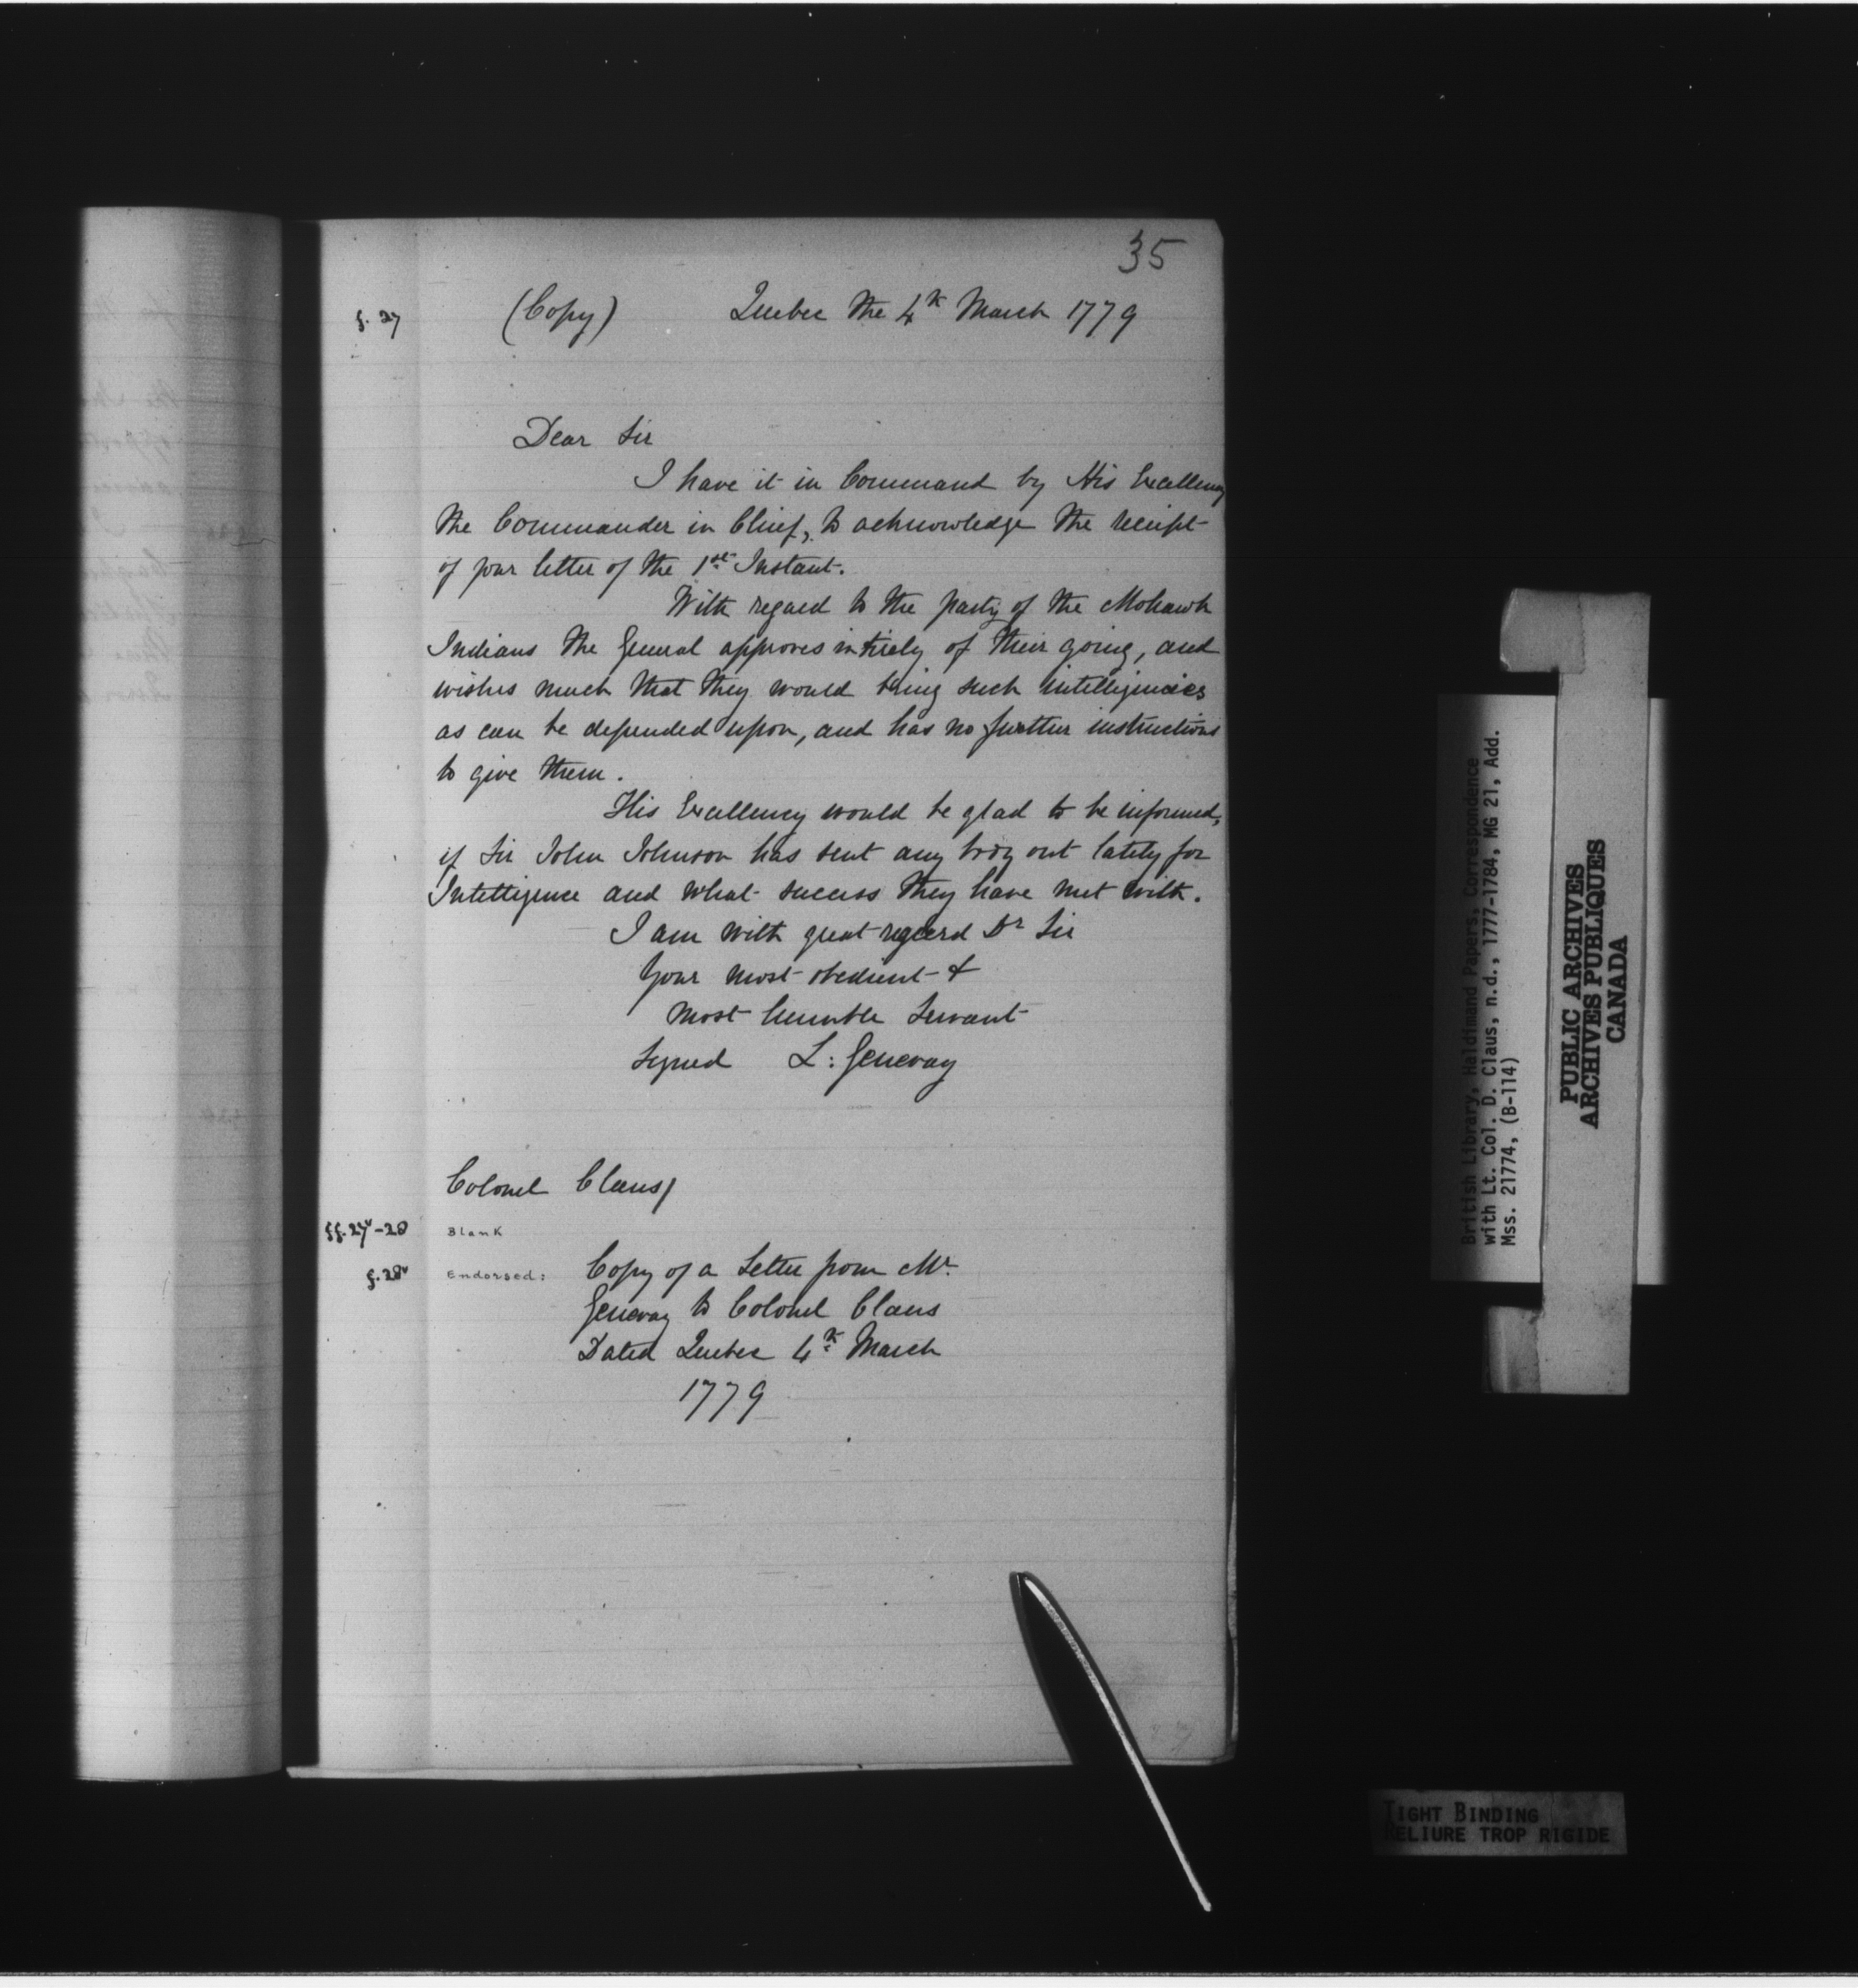 35
f. 27
(Copy) Quebec the 4th March 1779
Dear Sir
I have it in Command by His Excellency
the Commander in Chief, to acknowledge the receipt
of your letter of the 1st Instant.
With regard to the party of the Mohawk
Indians the General approves intirely of their going, and
wishes much that they would bring such intelligencies
as can be depended upon, and has no further instructions
to give them.
His Excellency would be glad to be informed,
if Sir John Johnson has sent any body out lately for
Intelligence and what success they have met with.
I am with great regard Dr Sir
Your most obedient &
most humble Servant
Signed L: Genevay
Colonel Claus
ff. 27v-28 Blank
f. 28v Endorsed: Copy of a Letter from Mr.
Genevay to Colonel Claus
Dated Quebec 4th March
1779
British Library, Haldimand Papers, Correspondence
with Lt. Col. D. Claus, n.d., 1777-1784, MG 21, Add.
Mss. 21774, (B-114)
PUBLIC ARCHIVES
ARCHIVES PUBLIQUES
CANADA
TIGHT BINDING
RELIURE TROP RIGIDE